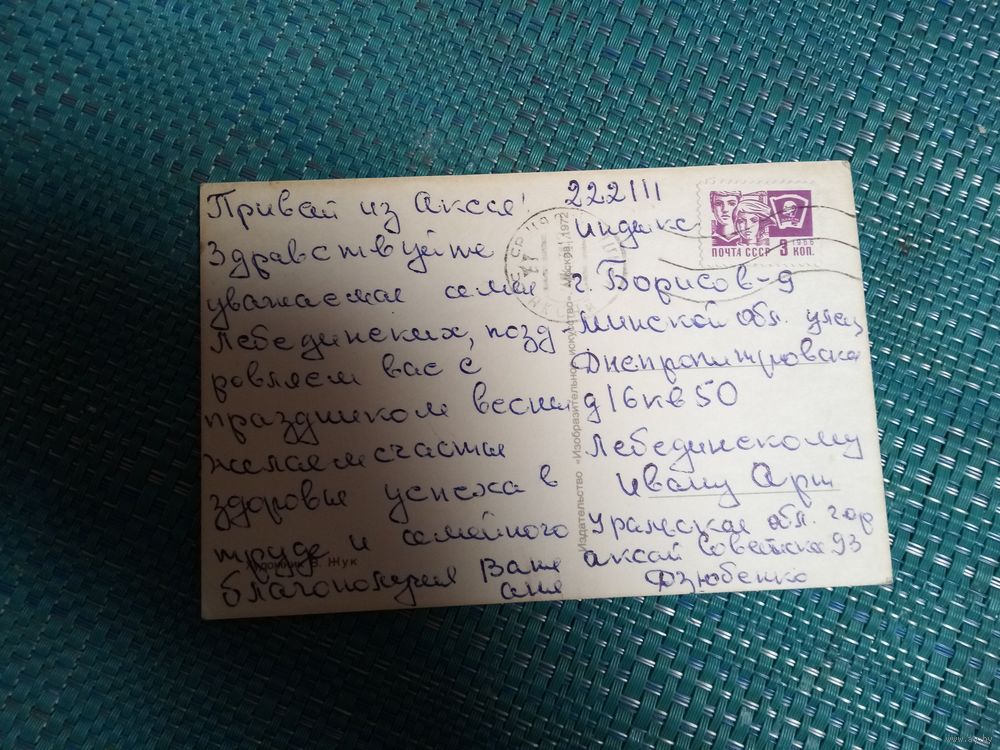 Привай из Аксая!
Здравствуйте
уважаемая семья
Лебединских, позд
ровляем вас с
праздником весны
желаем счастья
здоровья успеха в
труде и семейного
благополучия Ваня
Аня
222111
индекс
г. Борисов-9
минской обл. улец
Днепропитровска
д 16 кв 50
Лебединскому
Ивану
Уральская обл. гор
Аксай Советска 93
Дзюбенко
ПОЧТА СССР 3 КОП.
1966
Издательство «Изобразительное искусство». Москва. 1972
Художник З. Жук